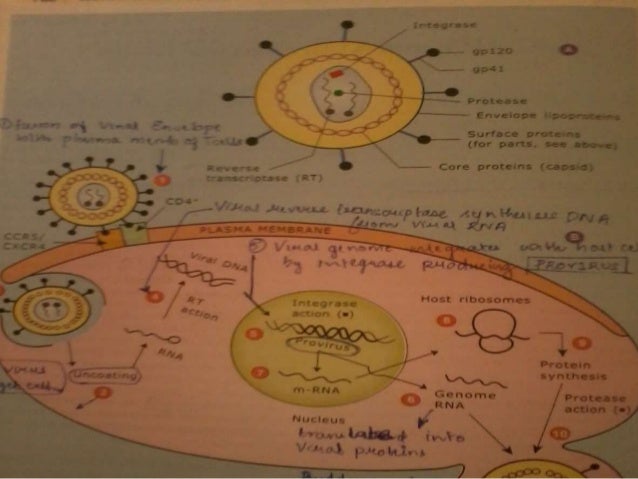 Integrase
gp120
A
gp41
Protease
Envelope lipoproteins
Surface proteins
(for parts, see above)
Core proteins (capsid)
Reverse
transcriptase (RT)
fusion of Viral Envelope
with plasma memb of T cells
1
CD4
CCR5/
CXCR4
Viral reverse transcriptase synthesises DNA
from viral RNA
PLASMA MEMBRANE
B
5 Viral genome integrates with host ce
by integrase producing PROVIRUS
Viral DNA
4
RT
action
RNA
Uncoating
3
virus
Integrase
action
5
Provirus
7
m-RNA
Nucleus
translated into
Viral proteins
Host ribosomes
8
9
Protein
synthesis
6
Genome
RNA
Protease
action
10